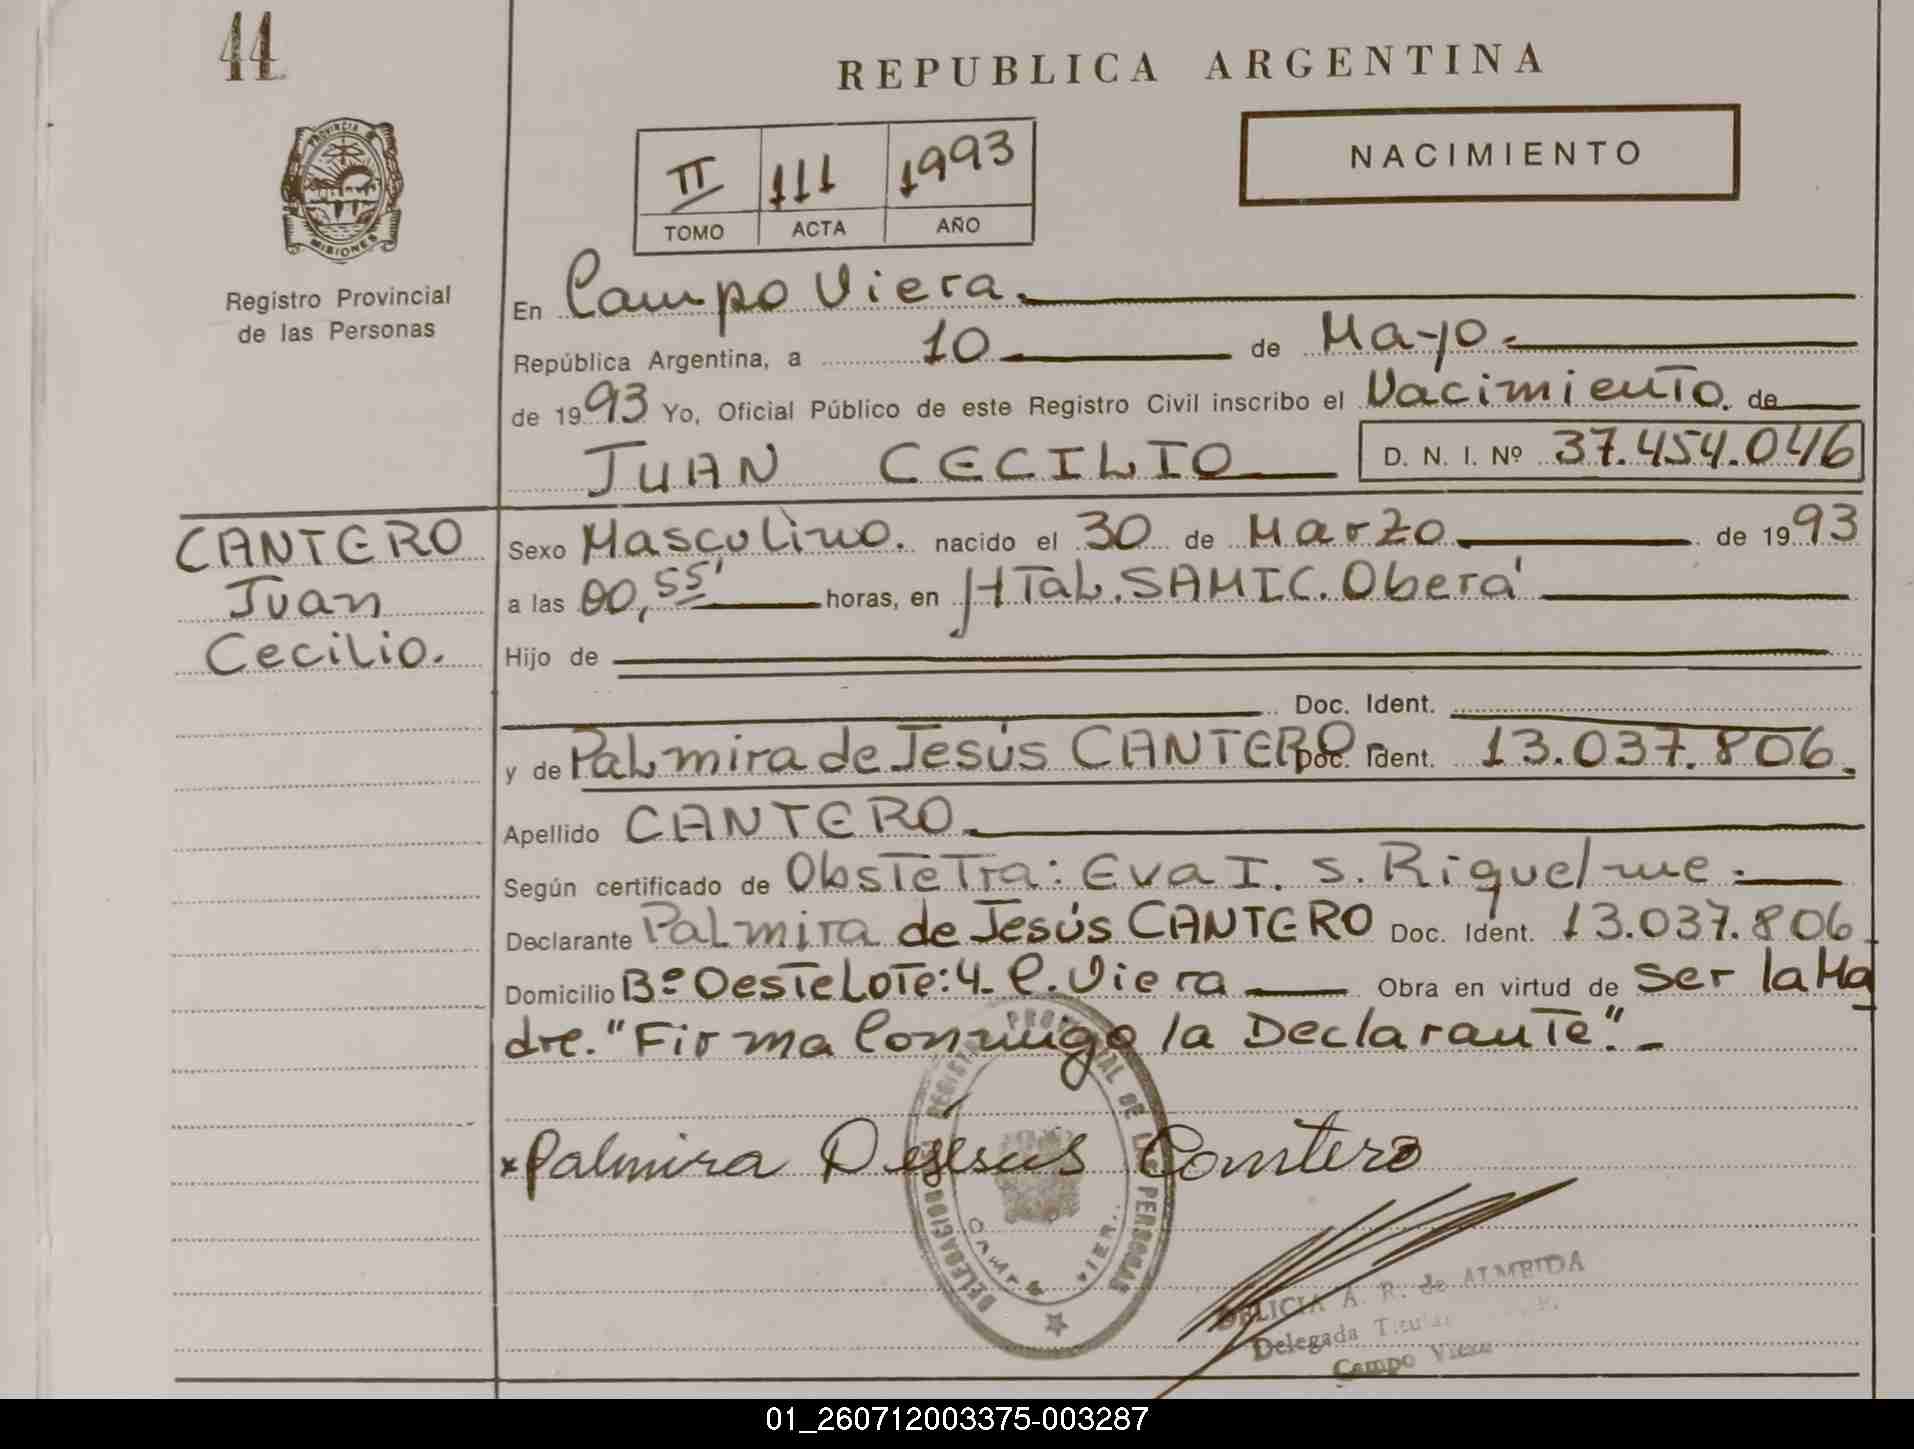 44
REPUBLICA ARGENTINA
NACIMIENTO
PROVINCIA DE
MISIONES
Registro Provincial
de las Personas
II 111 1993
TOMO ACTA AÑO
En Campo Viera.
República Argentina, a 10 de Mayo.
de 1993 Yo, Oficial Público de este Registro Civil inscribo el Nacimiento. de
JUAN CECILIO D. N. I. Nº 37.454.046
CANTERO
Juan
Cecilio.
Sexo Masculino. nacido el 30 de Marzo de 1993
a las 00,55' horas, en HTal. SAMIC. Oberá
Hijo de
Doc. Ident.
y de Palmira de Jesús CANTERO Doc. Ident. 13.037.806.
Apellido CANTERO.
Según certificado de ObsTeTra: Eva I. S. Riquelme.
Declarante Palmira de Jesús CANTERO Doc. Ident. 13.037.806
Domicilio Bº Oeste Lote: 4. C. Viera Obra en virtud de ser la Ma
dre. "Firma Conmigo la Declarante".
x Palmira Dejésus Cantero
DELEGACION REGISTRO PROVINCIAL DE LAS PERSONAS
CAMPO VIERA
DELICIA A. R. de ALMEIDA
Delegada Titular
Campo Viera
01_260712003375-003287